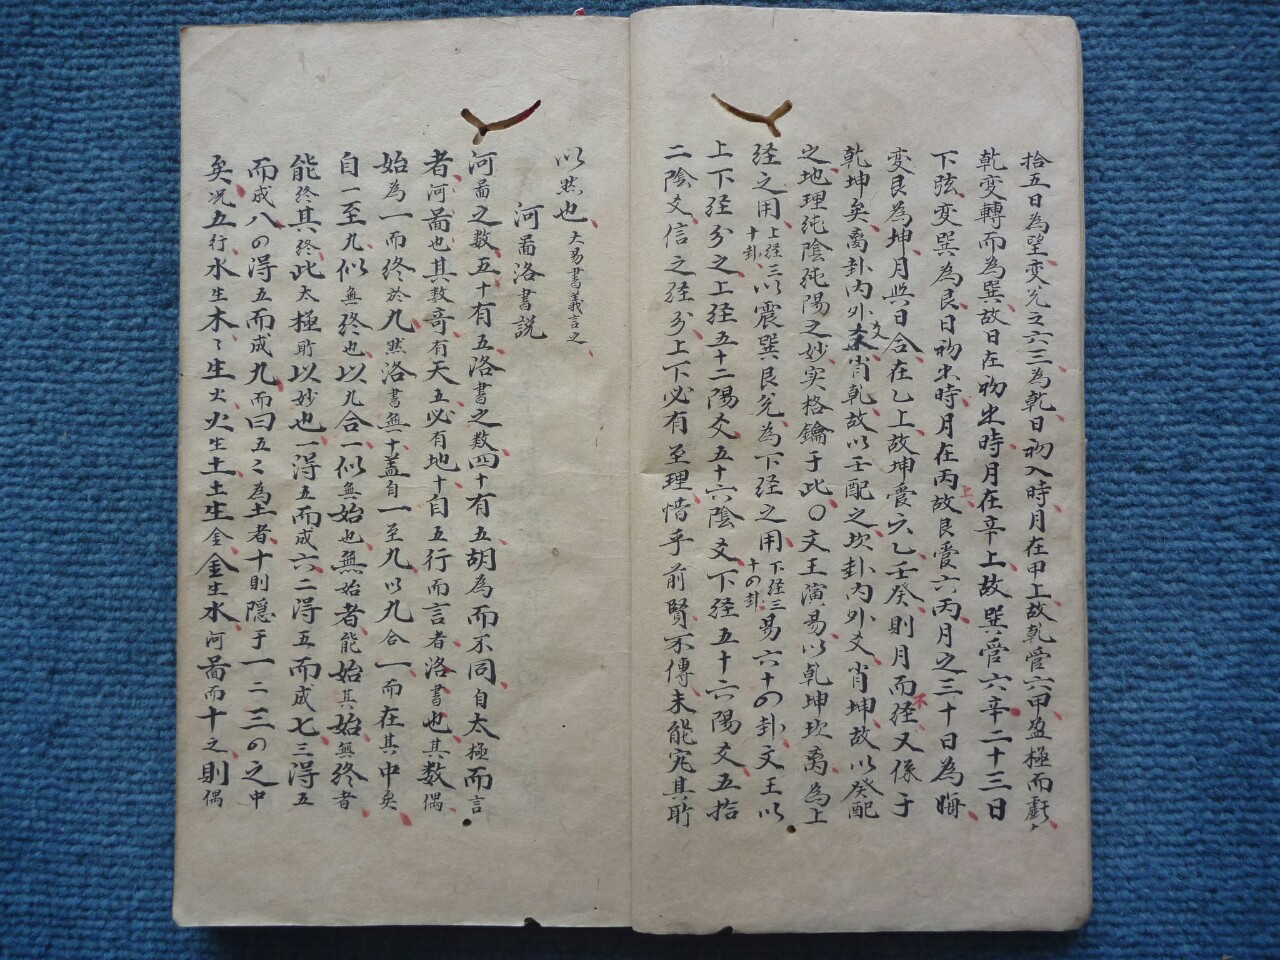 拾五日為望变兑之六三為乾日初入時月在甲上故乾管六甲盈極而虧〻
乾变轉而為巽故日在初出時月在辛上故巽管六辛二十三日
下弦变巽為艮日初出時月在丙上故艮管六丙月之三十日為晦
变艮為坤月與日合在乙上故坤管六乙壬癸則月而不経又係于
乾坤矣离卦内外爻肖乾故以壬配之坎卦内外爻肖坤故以癸配
之地理純陰純陽之妙实格鑰于此〇文王演易以乾坤坎离為上
経之用上経三十卦以震巽艮兑為下経之用下経三十の卦易六十の卦文王以
上下経分之上経五十二陽爻五十六陰爻下経五十六陽爻五拾
二陰爻信之経分上下必有至理惜乎前賢不傳未能究其所
以然也大易書義言之
河啚洛書説
河啚之数五十有五洛書之数四十有五胡為而不同自太極而言
者河啚也其数竒有天五必有地十自五行而言者洛書也其数偶
始為一而終於九然洛書無十盖自一至九以九合一而在其中矣
自一至九似無終也以九合一似無始也無始者能始其始無終者
能終其終此太極所以妙也一得五而成六二得五而成七三得五
而成八の得五而成九而曰五之為土者十則隠于一二三の之中
矣况五行水生木〻生火火生土土生金金生水河啚而十之則偶